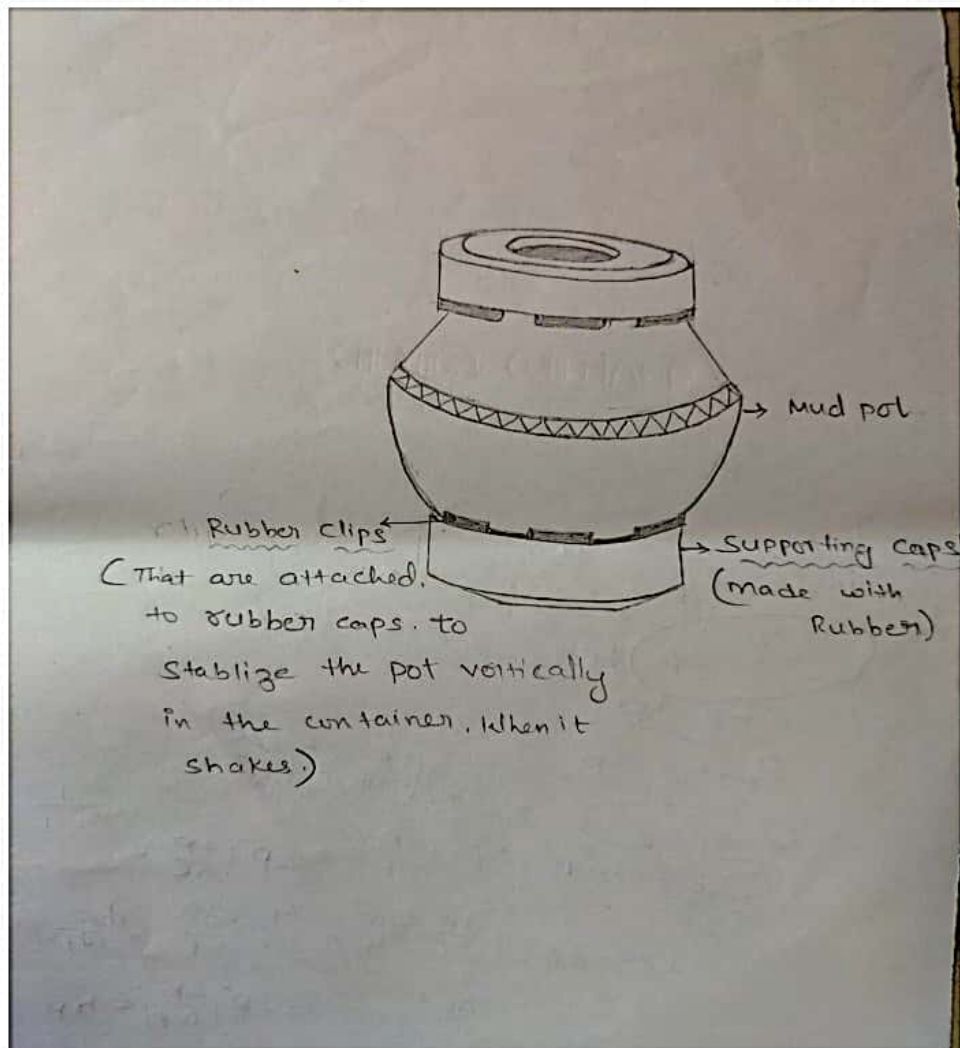 Mud pot
Rubber clips
(That are attached.
to rubber caps. to
stablize the pot vertically
in the container. When it
shakes.)
Supporting caps
(made with
Rubber)